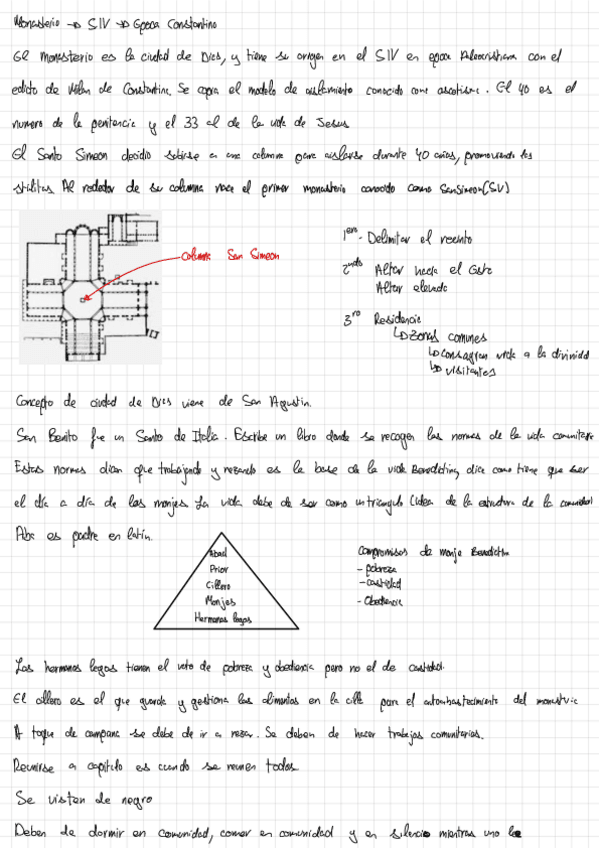 Monasterio → SIV → Epoca Constantino
El monasterio es la ciudad de Dios, y tiene su origen en el SIV en epoca Paleocristiana con el
edicto de Milan de Constantino. Se copia el modelo de aislamiento conocido como ascetismo. El 40 es el
numero de la penitencia y el 33 el de la vida de Jesus
El Santo Simeon decidio subirse a una columna para aislarse durante 40 años, promoviendo los
stilitas Al rededor de su columna nace el primer monasterio conocido como San Simeon (SV)
Columna San Simeon
1ero - Delimitar el recinto
2ndo Altar hacia el Este
Altar elevado
3ro Residencia
↳ Zonas comunes
↳ Consagran vida a la divinidad
↳ visitantes
Concepto de ciudad de Dios viene de San Agustin.
San Benito fue un Santo de Italia. Escribe un libro donde se recogen las normas de la vida comunitaria
Estas normas dican que trabajando y rezando es la base de la vida Benedictina, dice como tiene que ser
el día a día de los monjes La vida debe de ser como un triangulo (idea de la estructura de la comunidad
Aba es padre en latín.
Abad
Prior
Cillero
Monjes
Hermanos legos
Compromisos de monje Benedictino
- pobreza
- castidad
- Obediencia
Los hermanos legos tienen el voto de pobreza y obediencia pero no el de castidad.
El cillero es el que guarda y gestiona los alimentos en la cilla para el autoabastecimiento del monasterio
A toque de campana se debe de ir a rezar. Se deben de hacer trabajos comunitarios.
Reunirse a capitulo es cuando se reunen todos
Se visten de negro
Deben de dormir en comunidad, comer en comunidad y en silencio mientras uno lee